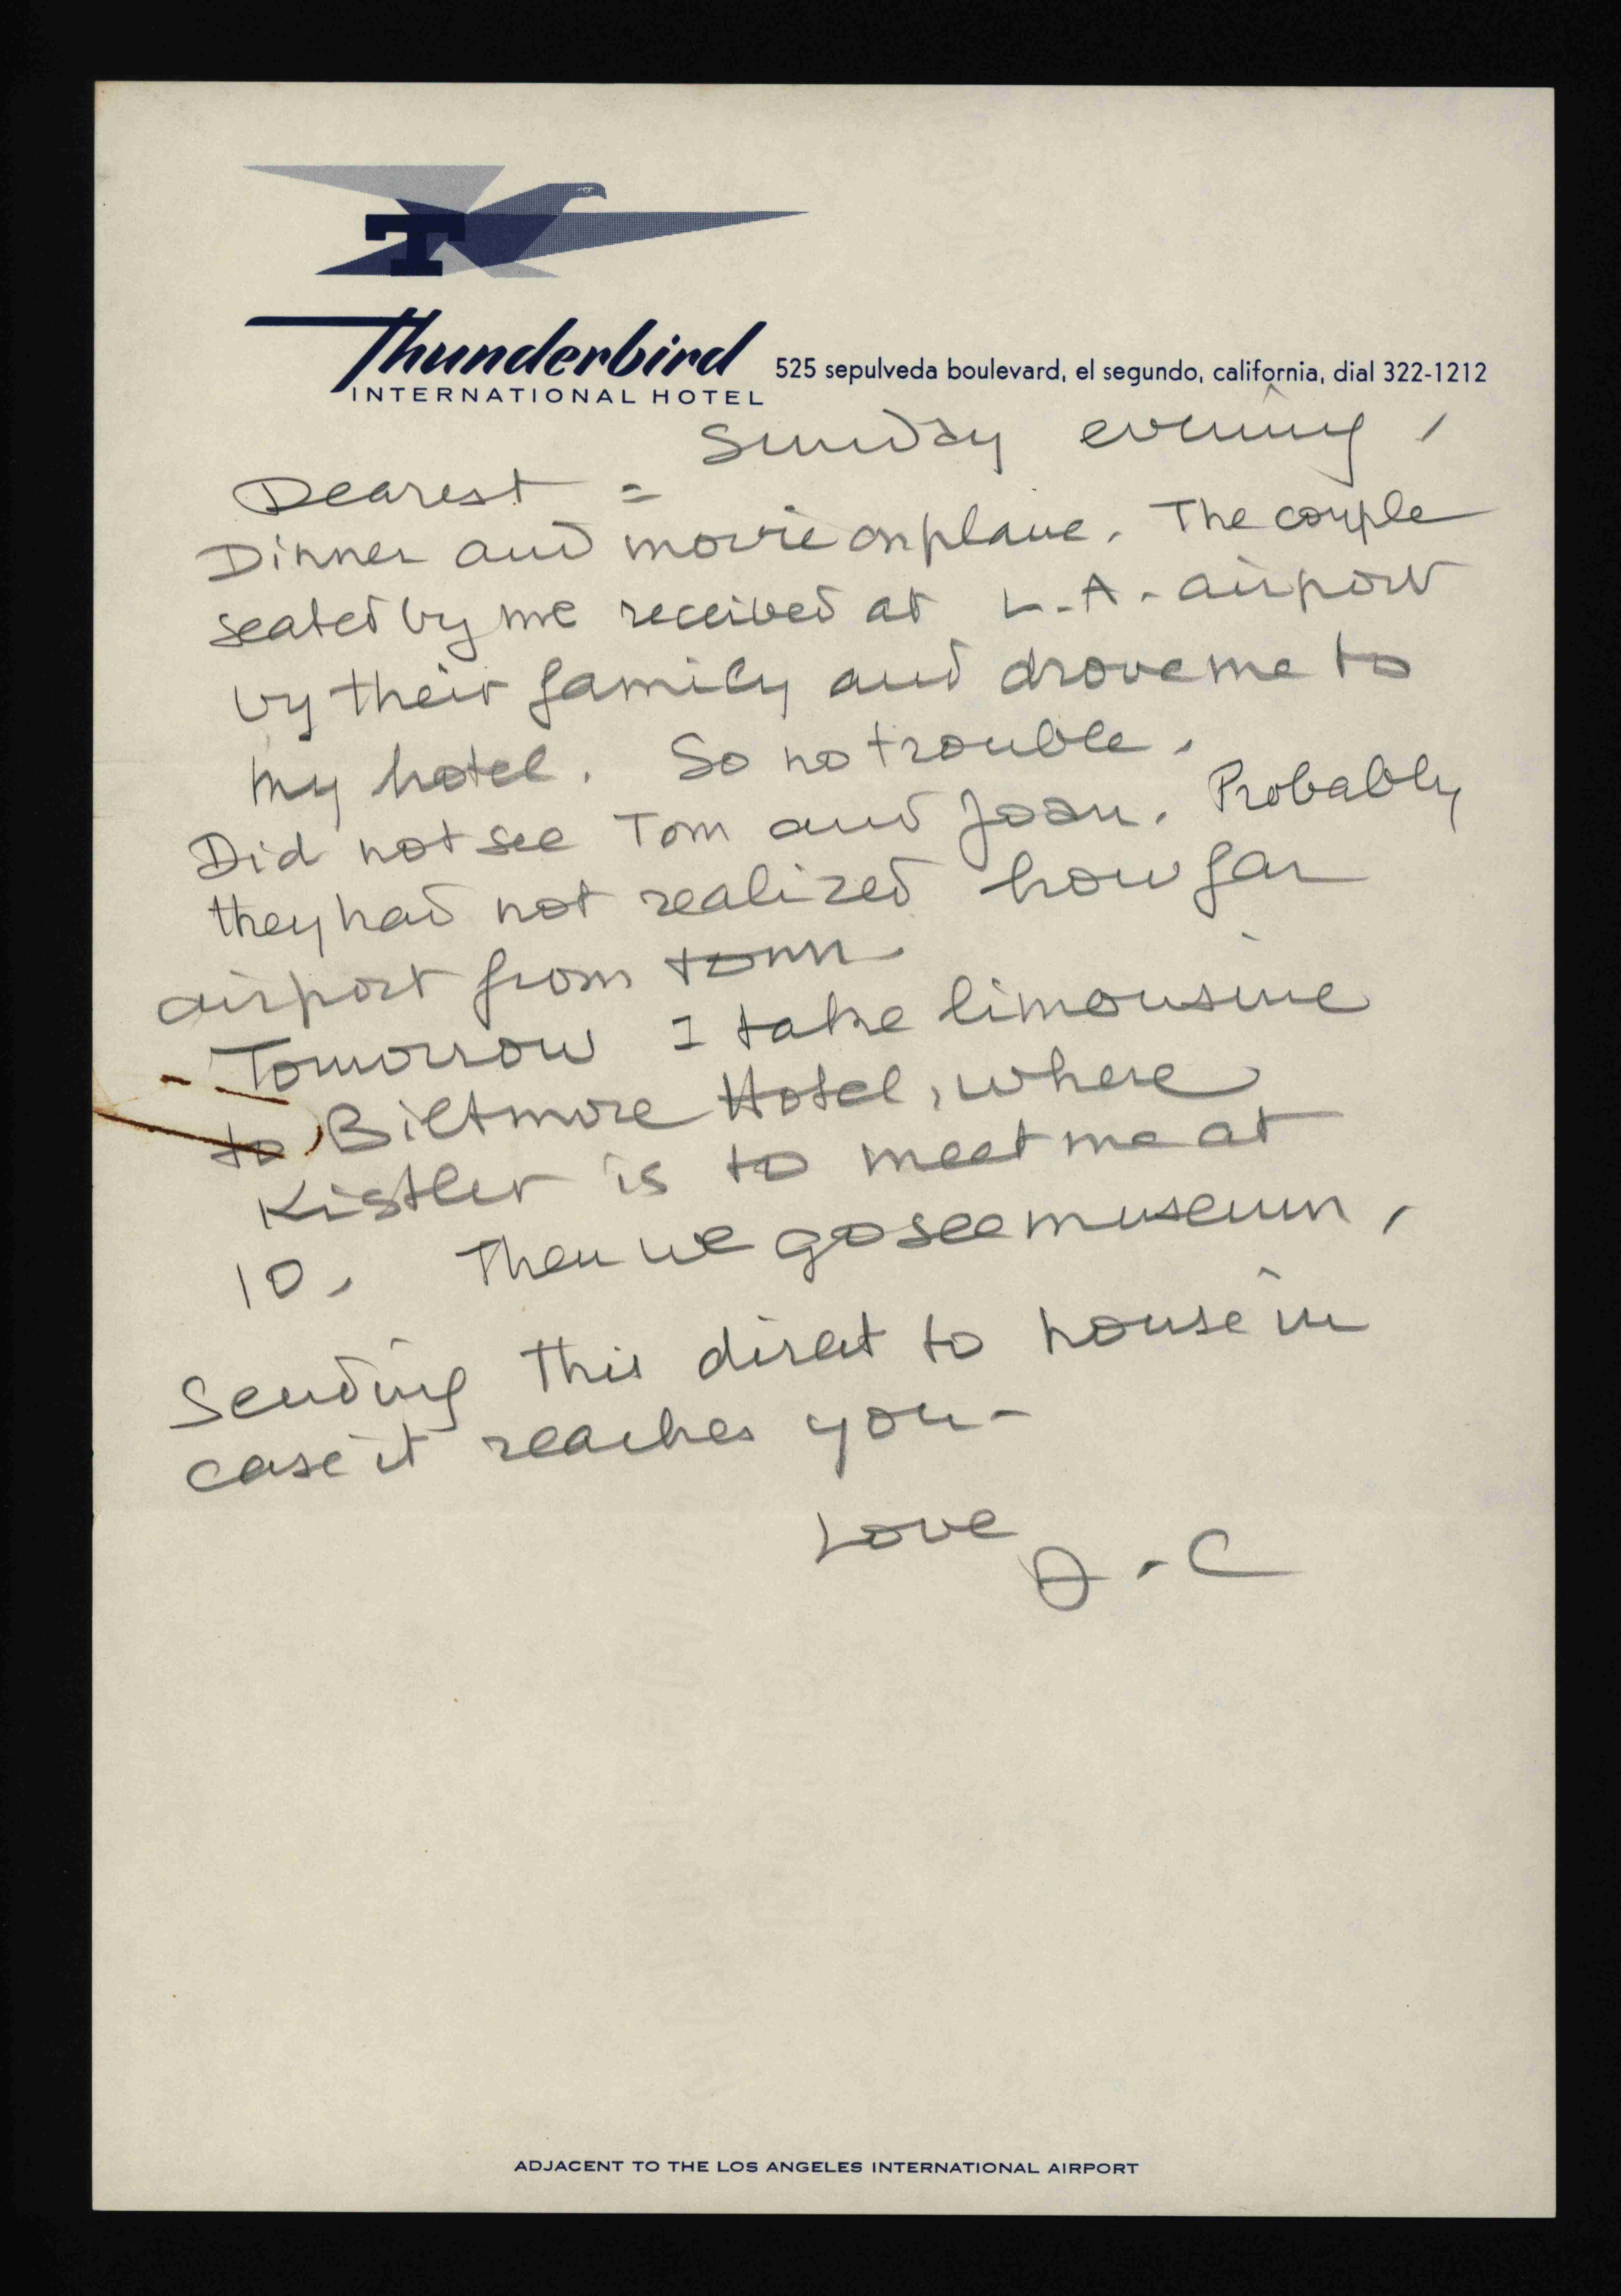 T
Thunderbird
INTERNATIONAL HOTEL
525 sepulveda boulevard, el segundo, california, dial 322-1212
Sunday evening,
Dearest =
Dinner and movie on plane. The couple
seated by me received at L.A. airport
by their family and drove me to
my hotel. So no trouble.
Did not see Tom and Joan. Probably
they had not realized how far
airport from town
Tomorrow I take limousine
to Biltmore Hotel, where
Kistler is to meet me at
10. Then we go see museum.
Sending this direct to house in
case it reaches you-
Love
J.C
ADJACENT TO THE LOS ANGELES INTERNATIONAL AIRPORT